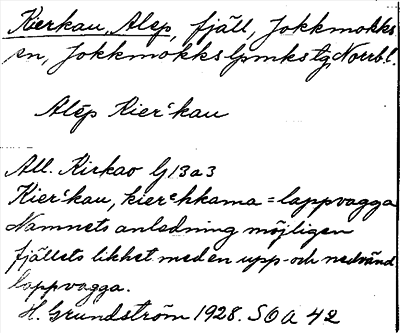 Kierkau, Alep, fjäll, Jokkmokks
sn, Jokkmokks lpmks tg, Norrb. l.
Alēp Kier̔kau
All. Kirkao G 13 a 3
Kier̔kau, kierehkama = lappvagga
Namnets anledning möjligen
fjällets likhet med en upp- och nedvänd
lappvagga.
H. Grundström 1928. SOA 42